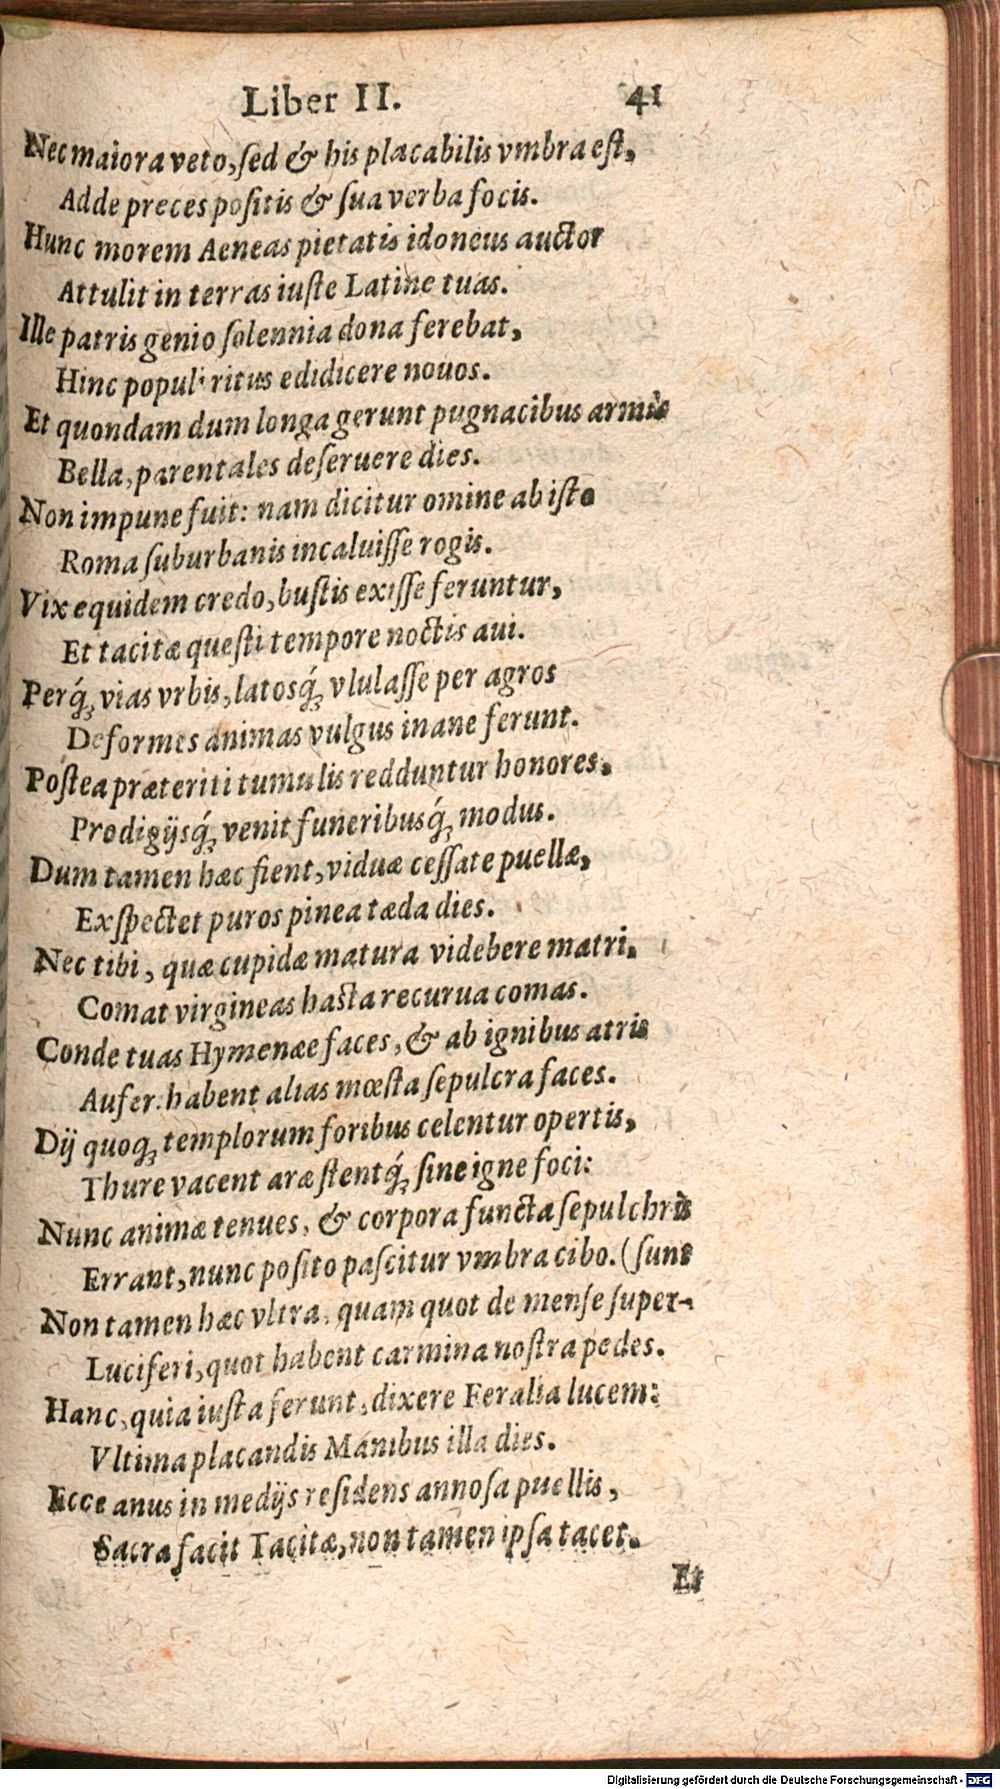 Liber II. 41
Nec maiora veto, ſed & his placabilis vmbra eſt,
Adde preces poſitis & ſua verba focis.
Hunc morem Aeneas pietatis idoneus auctor
Attulit in terras iuſte Latine tuas.
Ille patris genio ſolennia dona ferebat,
Hinc populi ritus edidicere nouos.
Et quondam dum longa gerunt pugnacibus armis
Bella, parentales deſeruere dies.
Non impune fuit: nam dicitur omine ab iſto
Roma ſuburbanis incaluiſſe rogis.
Vix equidem credo, buſtis exiſſe feruntur,
Et tacitæ queſti tempore noctis aui.
Perq́; vias vrbis, latosq́; vlulaſſe per agros
Deformes animas vulgus inane ferunt.
Poſtea præteriti tumulis redduntur honores,
Prodigijsq́; venit funeribusq́; modus.
Dum tamen hæc fient, viduæ ceſſate puellæ,
Exſpectet puros pinea tæda dies.
Nec tibi, quæ cupidæ matura videbere matri,
Comat virgineas haſta recurua comas.
Conde tuas Hymenæe faces, & ab ignibus atris
Aufer: habent alias mœſta ſepulcra faces.
Dij quoq; templorum foribus celentur opertis,
Thure vacent aræ ſtentq́; ſine igne foci:
Nunc animæ tenues, & corpora functa ſepulchris
Errant, nunc poſito paſcitur vmbra cibo. (ſunt
Non tamen hæc vltra, quam quot de menſe ſuper-
Luciferi, quot habent carmina noſtra pedes.
Hanc, quia iuſta ferunt, dixere Feralia lucem:
Vltima placandis Manibus illa dies.
Ecce anus in medijs reſidens annoſa puellis,
Sacra facit Tacitæ, non tamen ipſa tacet.
Et
Digitalisierung gefördert durch die Deutsche Forschungsgemeinschaft - DFG